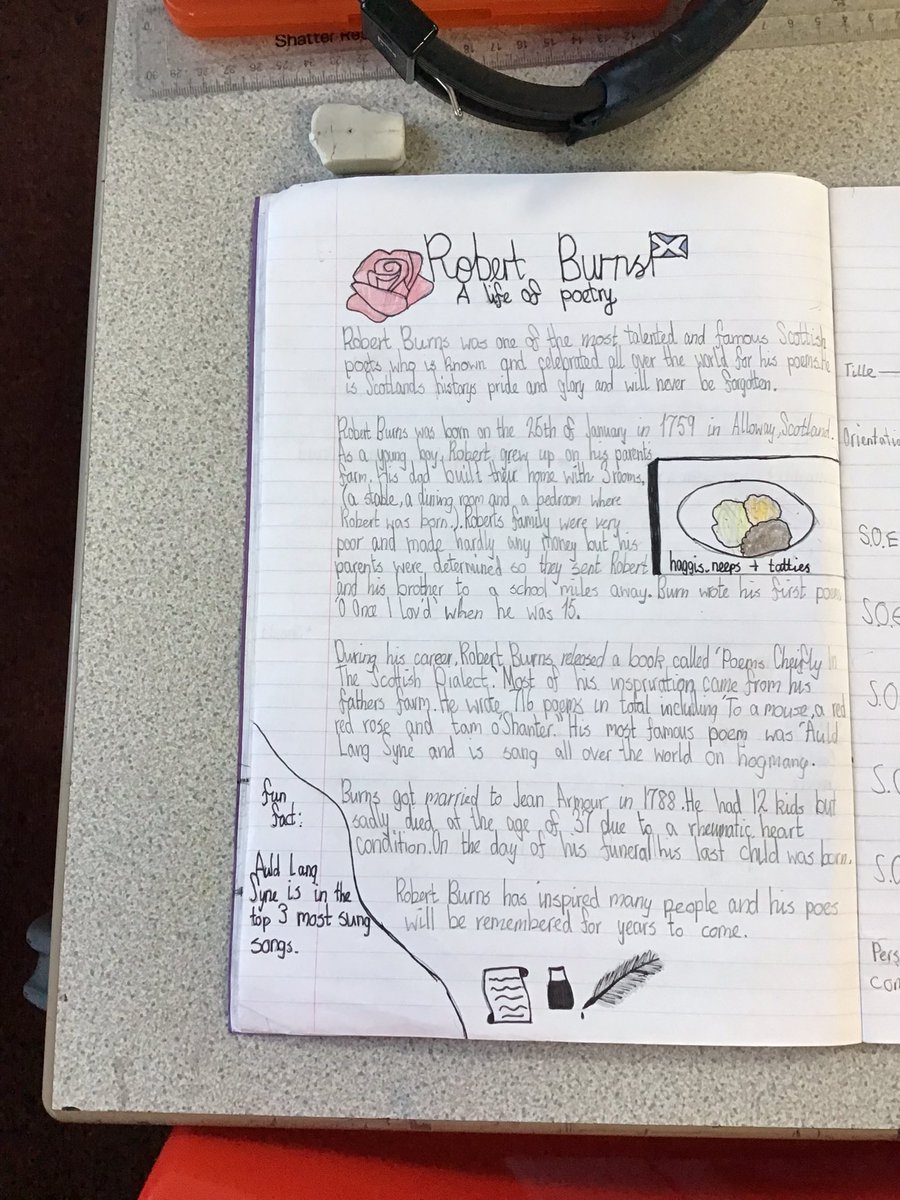 Shatter Res
Robert Burns
A life of poetry
Robert Burns was one of the most talented and famous Scottish
poets, who is known and celebrated all over the world for his poems. He
is Scotlands historys pride and glory and will never be forgotten.
Robert Burns was born on the 25th of January in 1759 in Alloway, Scotland.
As a young boy, Robert, grew up on his parents
farm. His dad built their home with 3 rooms,
(a stable, a dining room and a bedroom where
Robert was born.). Roberts family were very
poor and made hardly any money but his
parents were determined so they sent Robert
and his brother to a school miles away. Burn wrote his first poem
'O Once I Lov'd' when he was 15.
haggis, neeps + tatties
During his career, Robert Burns, released a book called 'Poems, Cheifly In
The Scottish Dialect.' Most of his inspiration came from his
fathers farm. He wrote 716 poems in total including 'To a mouse, a red
red rose and tam o'Shanter.' His most famous poem was 'Auld
Lang Syne and is sang all over the world on hogmany.
Burns got married to Jean Armour in 1788. He had 12 kids but
sadly died at the age of 37 due to a rheumatic heart
condition. On the day of his funeral his last child was born.
Robert Burns has inspired many people and his poes
will be remembered for years to come.
fun
fact:
Auld Lang
Syne is in the
top 3 most sung
songs.
Title
Orientatio
S.O.E
S.O.E
S.O
S.O
S.O
Pers
com